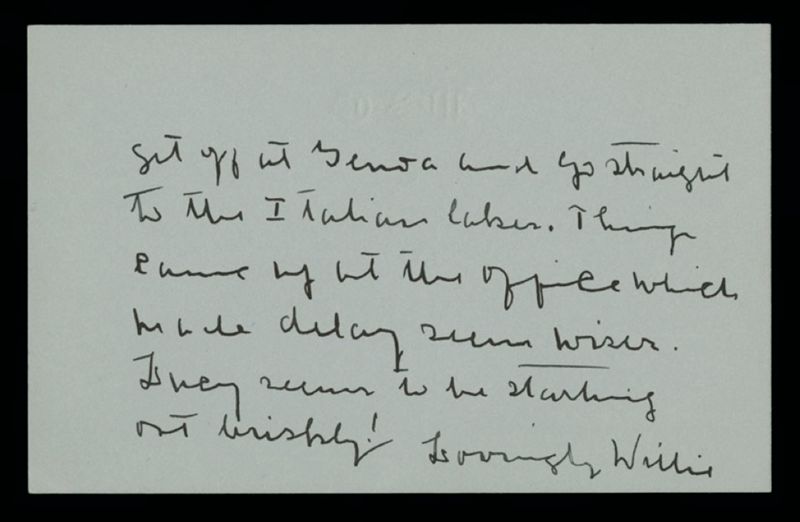 get off at Genoa and go straight
to the Italian lakes. Things
came up at the office which
made delay seem wiser.
Lucy seems to be starting
out briskly! Lovingly Willie